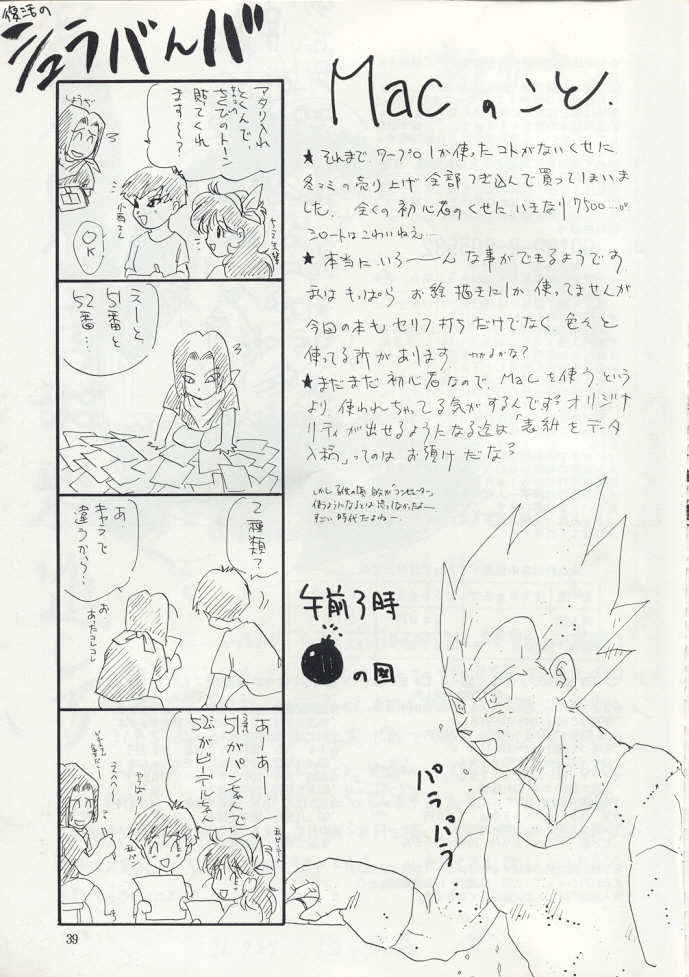 復活の
シュラバんバ
Mac のこと.
★ それまで、ワープロしか使ったコトがないくせに、
冬コミの売り上げ全部つぎ込んで買ってしまいま
した. 全くの初心者のくせに いきなり 7500…。
シロートはこわいねえ…
★ 本当にいろ〜〜んな事ができるようです.
私は もっぱら お絵描きにしか使ってませんが.
今回の本も セリフ打ちだけでなく、色々と
使ってる所があります. わかるかな?
★ まだまだ初心者なので、Macを使う、という
より、使われちゃってる気がするんです。オリジナ
リティが出せるようになる迄は「表紙をデータ
入稿」ってのは お預けだな。
すごい時代だよねー.
午前3時
の図
パラパラ…
アタリ入れ
とくんで、
貼ってくれ
ます〜?
OK
えーと、
51番と
52番…
2種類?
あ.
キャラで
違うから.
お
あったコレコレ
あーあー
51番がパンちゃんで
52がビーデルちゃん
やっぱり
えへへー
39